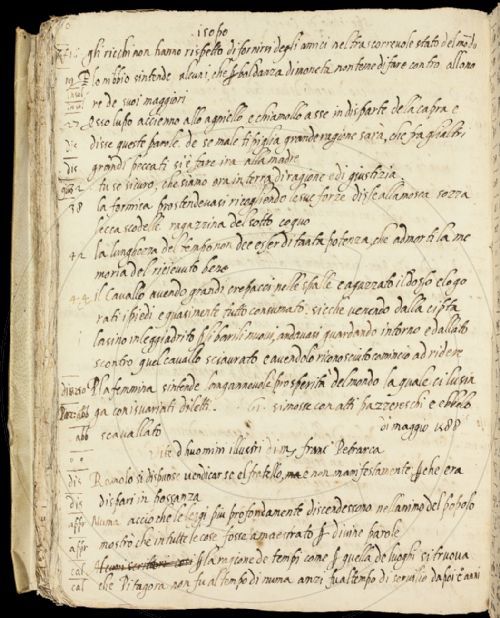 isopo
gli ricchi non hanno rispetto di fornirsi degli amici nel trascorrevole stato del modo
Plo nibbio sintende alcuni, che baldanza di moneta non teme di fare contro allono
re de suoi maggiori
Esso lupo accienno allo agniello e chiamollo a sse in disparte dela capra e
dis disse queste parole. de se male ti piglia grande ragione sara, che pa gli altri
dis grandi peccati si e fare ira alla madre
tu se sicuro, che siamo ora in terra di ragione e di giustizia
38 la formica prostendevasi ricogliendo le sue forze disse alla mosca sozza
lecca scodelle ragazzina del sotto cuoquo
42 la lungheza del tempo non dee esser di tanta potenza, che admorti la me
moria del ricievuto bene
44 il Cavallo avendo grandi crepacci nelle spalle e aguzzato il dosso e logo
rati i piedi e quasimente tutto consumato. sicche venendo dalla
lasino inleggiadrito barili nuovi, andavasi guardando intorno e da llato
scontro quel cavallo sciaurato e avendolo riconosciuto comincio ad ridere
la femmina sintende longannevole prosperita del mondo la quale ci lusin
ga con isvariati diletti. si mosse con atti pazzereschi e ebbelo
abb scavallato di maggio 1588
d huomini illustri di m Franc Petrarca
dis Romolo si dispuose vendicarse el fratello, ma e non manifestamente che era
dis disfari in possanza
affr Numa accio che le legi piu profondamente discendessono nellanimo del popolo
affr mostro che in tutte le cose fosse amaestrato divine parole
cal la ragione de tempi come quella de luoghi si truova
cal che Pitagora non fu al tempo di numa anzi fu al tempo di servilio dapoi anni